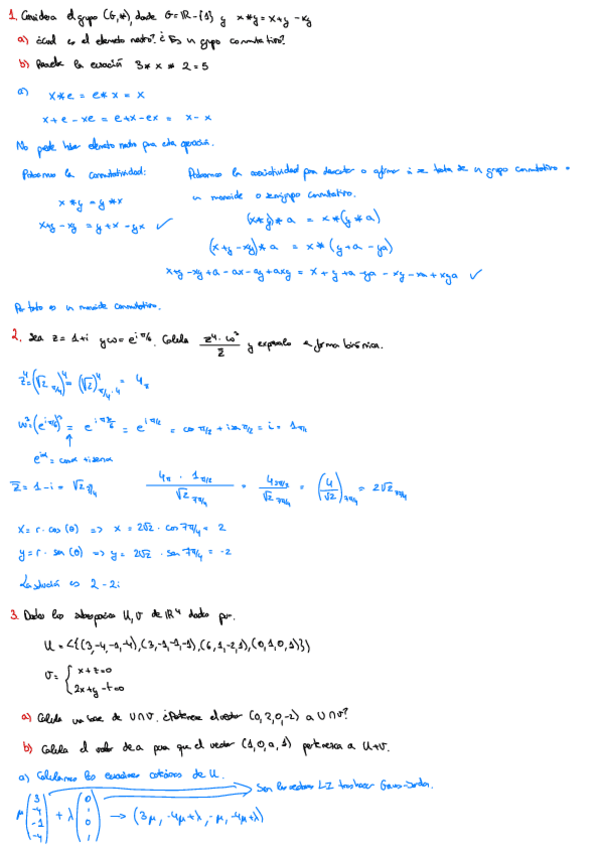 1. Considera el grupo (G,*), donde G=ℝ-{1} y x*y=x+y-xy
a) ¿Cuál es el elemento neutro? ¿Es un grupo conmutativo?
b) Resuelve la ecuación 3*x*2=5
a) x*e = e*x = x
x+e-xe = e+x-ex = x-x
No puede haber elemento neutro para esta operación.
Probamos la conmutatividad:
x*y = y*x
x+y-xy = y+x-yx ✓
Probamos la asociatividad para descartar o afirmar si se trata de un grupo conmutativo o
un monoide o semigrupo conmutativo.
(x*y)*a = x*(y*a)
(x+y-xy)*a = x*(y+a-ya)
x+y-xy+a-ax-ay+axy = x+y+a-ya-xy-xa+xya ✓
Por tanto es un monoide conmutativo.
2. Sea z=1+i y ω=e^{iπ/6}. Calcula z⁴·ω³/z̄ y exprésalo en forma binómica.
z⁴=(√2_{π/4})⁴=(√2)⁴_{π/4·4}=4_π
ω³=(e^{iπ/6})³ = e^{iπ3/6} = e^{iπ/2} = cos π/2 + i sen π/2 = i = 1_{π/2}
e^{iα} = cosα + i senα
z̄=1-i=√2_{7π/4}
4_π · 1_{π/2} / √2_{7π/4} = 4_{3π/2} / √2_{7π/4} = (4/√2)_{7π/4} = 2√2_{7π/4}
x=r·cos(θ) => x=2√2·cos 7π/4 = 2
y=r·sen(θ) => y=2√2·sen 7π/4 = -2
La solución es 2-2i
3. Dados los subespacios U,V de ℝ⁴ dados por:
U=<{(3,-4,-1,-4),(3,-1,-1,-1),(6,1,-2,1),(0,1,0,1)}>
V={x+z=0
2x+y-t=0
a) Calcula una base de U∩V. ¿Pertenece el vector (0,2,0,-2) a U∩V?
b) Calcula el valor de a para que el vector (1,0,a,1) pertenezca a U+V.
a) Calculamos las ecuaciones cartesianas de U.
Son los vectores LI tras hacer Gauss-Jordan.
μ(3 -4 -1 -4) + λ(0 1 0 1) → (3μ, -4μ+λ, -μ, -4μ+λ)